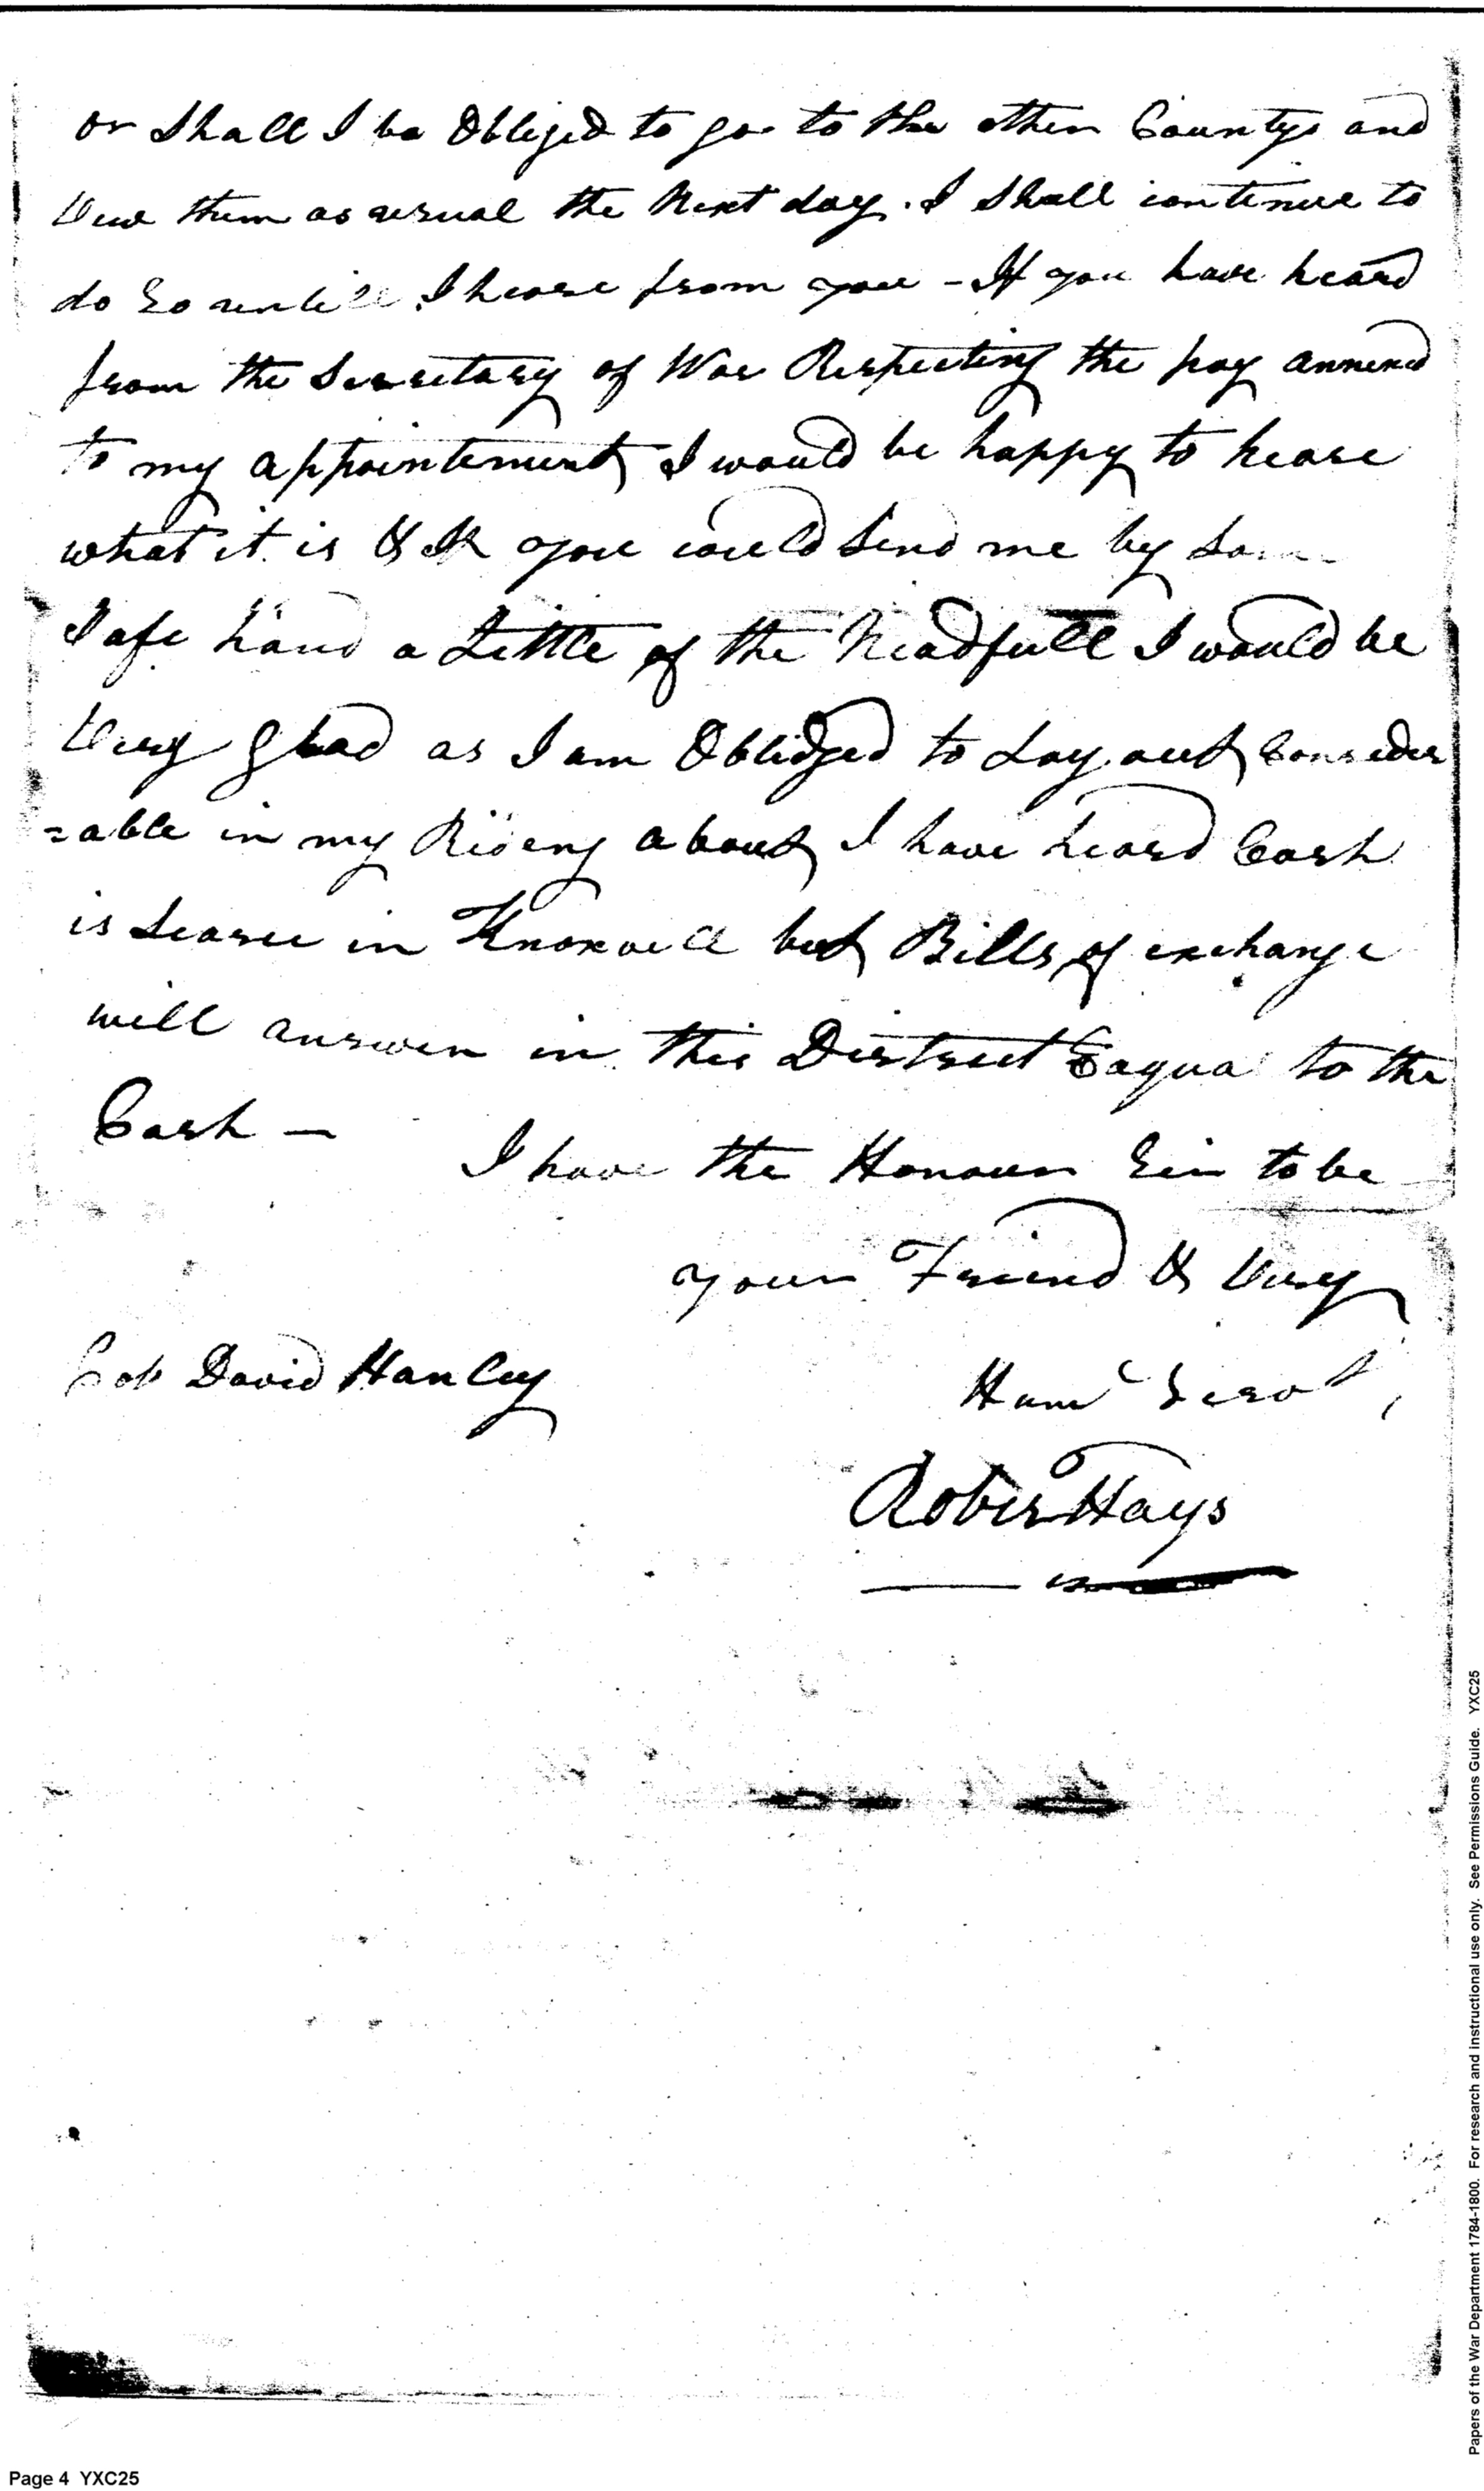 or Shall I be Obliged to go to the other Countys and
Vew them as usual the Next day. I Shall continue to
do So untill I heare from you - If you have heard
from the Secretary of War Respecting the pay annexed
to my appointement I would be happy to heare
what it is & If you could Send me by
Safe hand a Little of the Neadfull I would be
Very glad as I am Oblidged to Lay out Consider
=able in my Rideng about I have heard Cash
is Scarce in Knoxvill but Bills of exchange
will answer in this District Eaqual to the
Cash —
I have the Honour Sir to be
your Friend & Very
Col David Hanley
Humb Servt,
Robert Hays
Page 4 YXC25
Papers of the War Department 1784-1800. For research and instructional use only. See Permissions Guide. YXC25